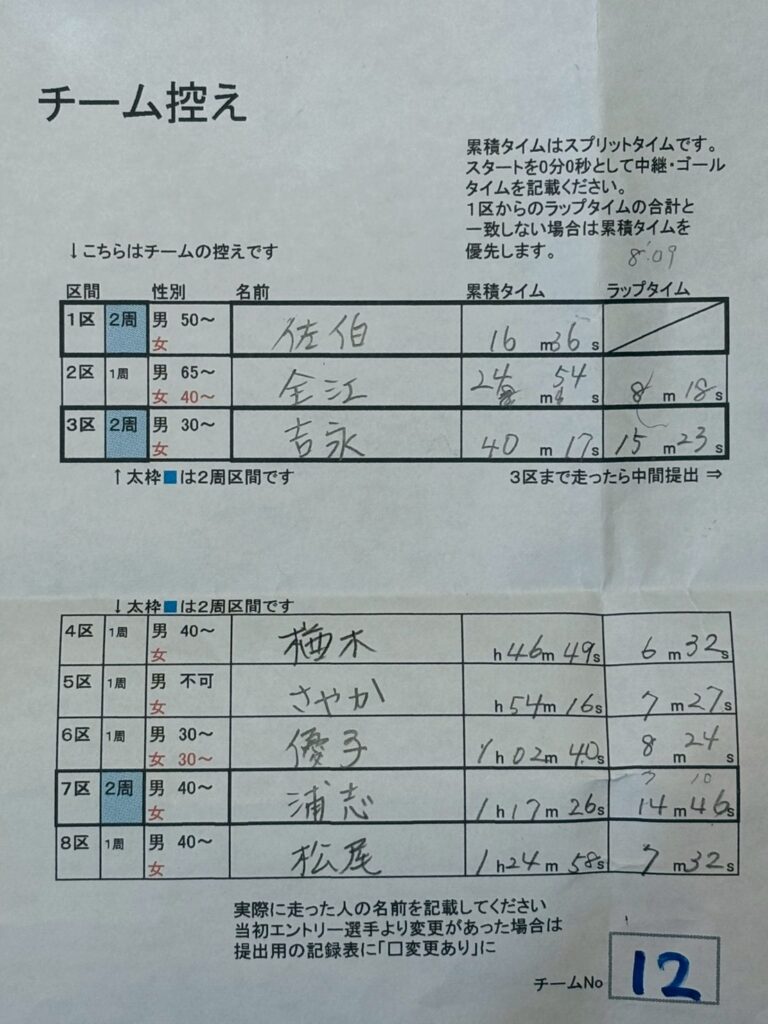 チーム控え
累積タイムはスプリットタイムです。
スタートを0分0秒として中継・ゴール
タイムを記載ください。
1区からのラップタイムの合計と
一致しない場合は累積タイムを
優先します。
8:09
↓こちらはチームの控えです
区間 性別 名前 累積タイム ラップタイム
1区 2周 男 50～ 女 佐伯 16 m 36 s
2区 1周 男 65～ 女 40～ 金江 24 m 54 s 8 m 18 s
3区 2周 男 30～ 女 吉永 40 m 17 s 15 m 23 s
↑太枠■は2周区間です 3区まで走ったら中間提出 ⇒
↓太枠■は2周区間です
4区 1周 男 40～ 女 楢木 h 46 m 49 s 6 m 32 s
5区 1周 男 不可 女 さやか h 54 m 16 s 7 m 27 s
6区 1周 男 30～ 女 30～ 優子 1 h 02 m 40 s 8 m 24 s
7 10
7区 2周 男 40～ 女 浦志 1 h 17 m 26 s 14 m 46 s
8区 1周 男 40～ 女 松尾 1 h 24 m 58 s 7 m 32 s
実際に走った人の名前を記載してください
当初エントリー選手より変更があった場合は
提出用の記録表に「口変更あり」に
チームNo 12